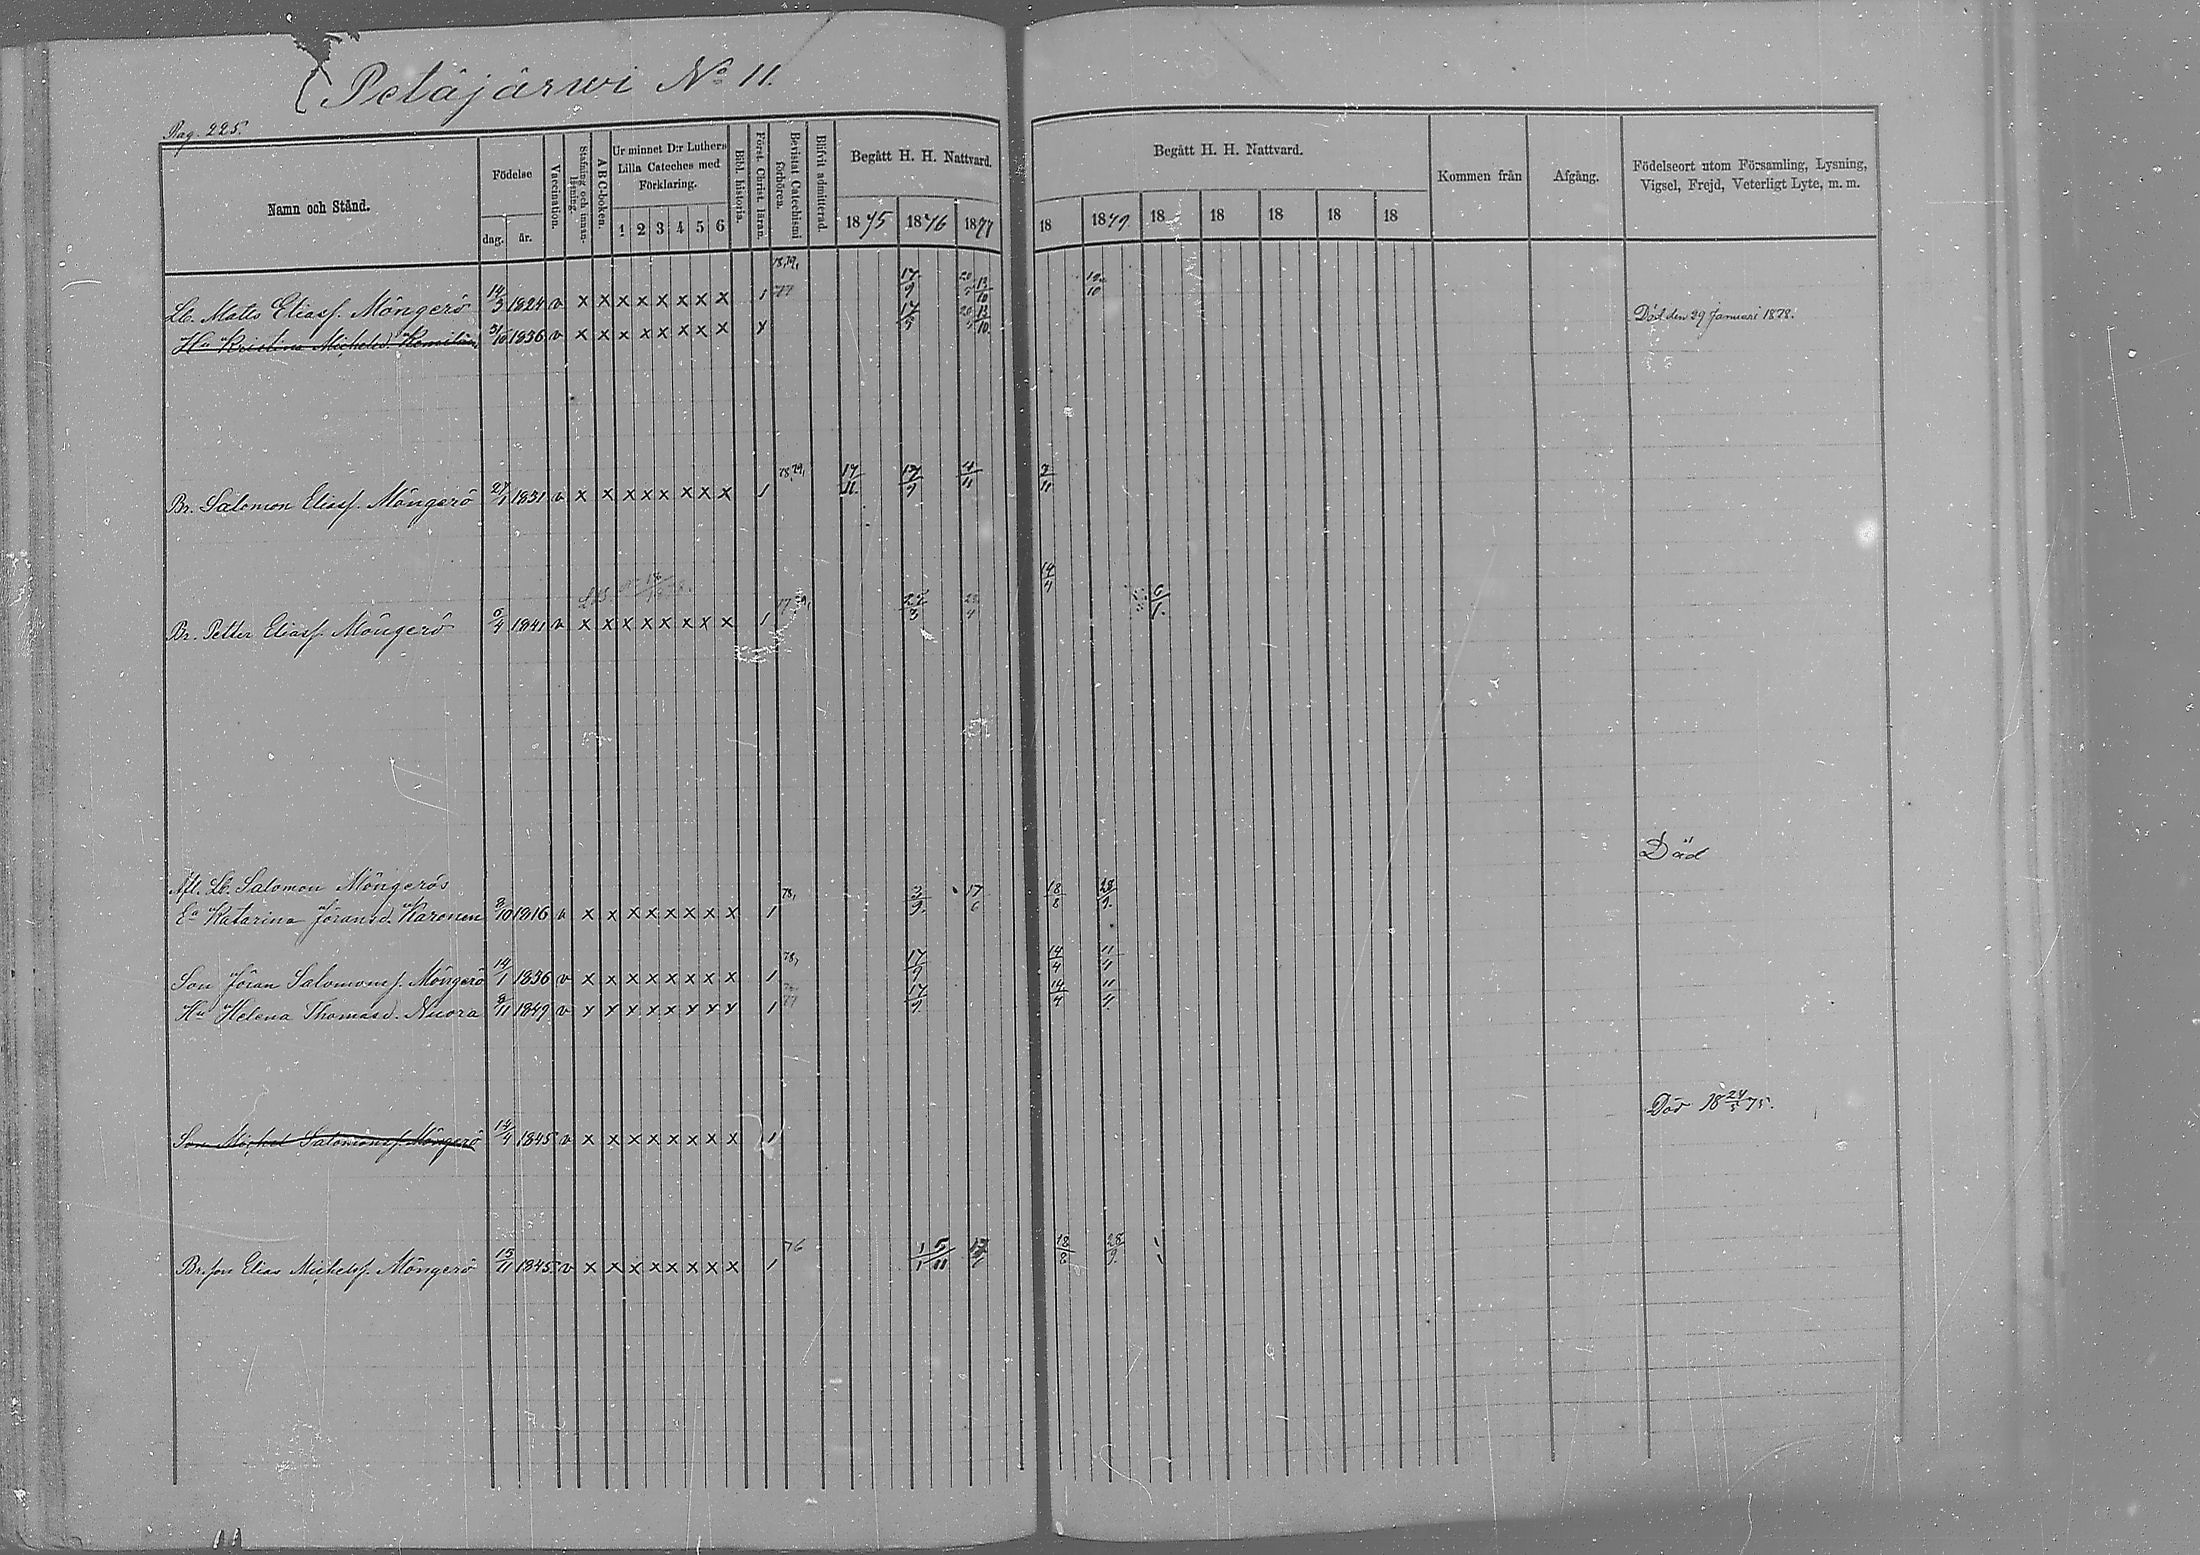 Petäjärwi No 11.
Pag. 225.
Namn och Stånd. Födelse dag. år. Vaccination. Stafning och innanläsning. ABC-boken. Ur minnet D:r Luthers Lilla Cateches med Förklaring. 1 2 3 4 5 6 Bibl. historia. Först. Christ. läran. Bevistat Catechismi förhören. Blifvit admitterad. Begått H. H. Nattvard. 1875 1876 1877
Begått H. H. Nattvard. 18 1879. 18 18 18 18 18 Kommen från Afgång. Födelseort utom Församling, Lysning, Vigsel, Frejd, Veterligt Lyte, m. m.
Lb. Matts Eliasf. Möngerö 14/3 1824 v x x x x x x x x 1 78, 79, 77 17/9 20 13/10 19/10
Hu Kristina Michelsd. 31/10 1836 v x x x x x x x x x 17/9 20 13/10 Död den 29 Januari 1878.
Br. Salomon Eliasf. Möngerö 27/1 1831 v x x x x x x x x 1 78, 79, 17/11. 17/9 4/11 3/11
Br. Petter Eliasf. Möngerö 6/4 1841 v x x x x x x x x 1 77 14/4 6/1.
Afl. Lb. Salomon Möngerös Död
Ea Katarina Jöransd. Karonen 8/10 1816 v x x x x x x x x 1 78, 3/9. 17/6 18/8 28/9.
Son Jöran Salomonsf. Möngerö 14/1 1836 v x x x x x x x x 1 78, 17/9 14/4 11/4
Hu Helena Thomasd. Nuora 8/11 1849 v x x x x x x x x 1 77 17/9. 14/4 11/4.
Son Michel Salomonsf. Möngerö 14/4 1845 v x x x x x x x x 1 Död 18 24/5 75.
Br. son Elias Michelsf. Möngerö 15/11 1845 v x x x x x x x x 1 76 1/1 5/11 18/8 28/9.